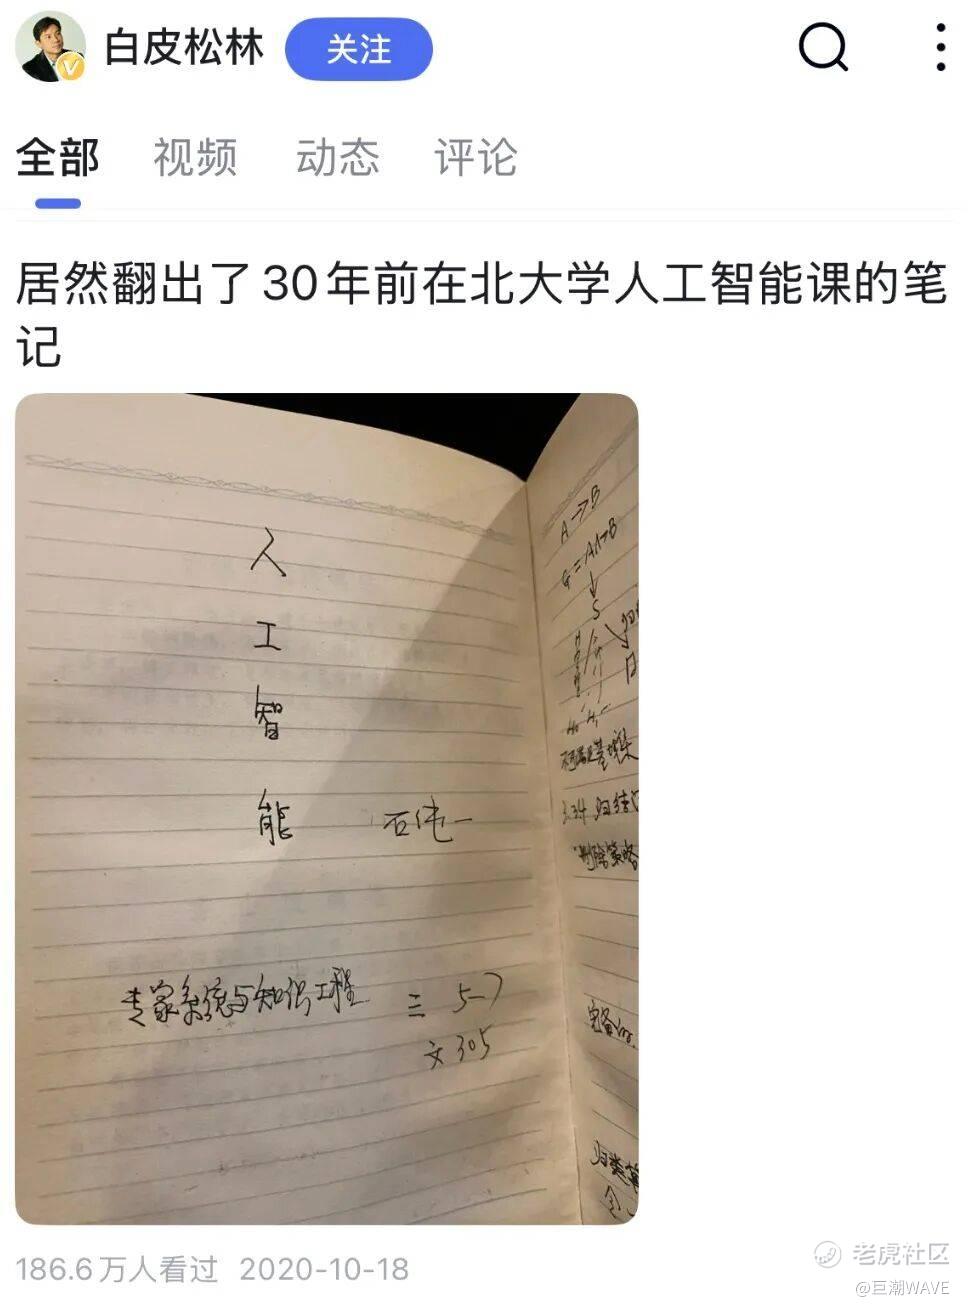 白皮松林 关注
全部 视频 动态 评论
居然翻出了30年前在北大学人工智能课的笔
记
人
工
智
能 石纯一
专家系统与知识工程 三 5-7
文305
A→B
G=A∧~B
↓
S
3.3.4 归结
删除策略
完备
归类
186.6万人看过 2020-10-18
老虎社区
@巨潮WAVE